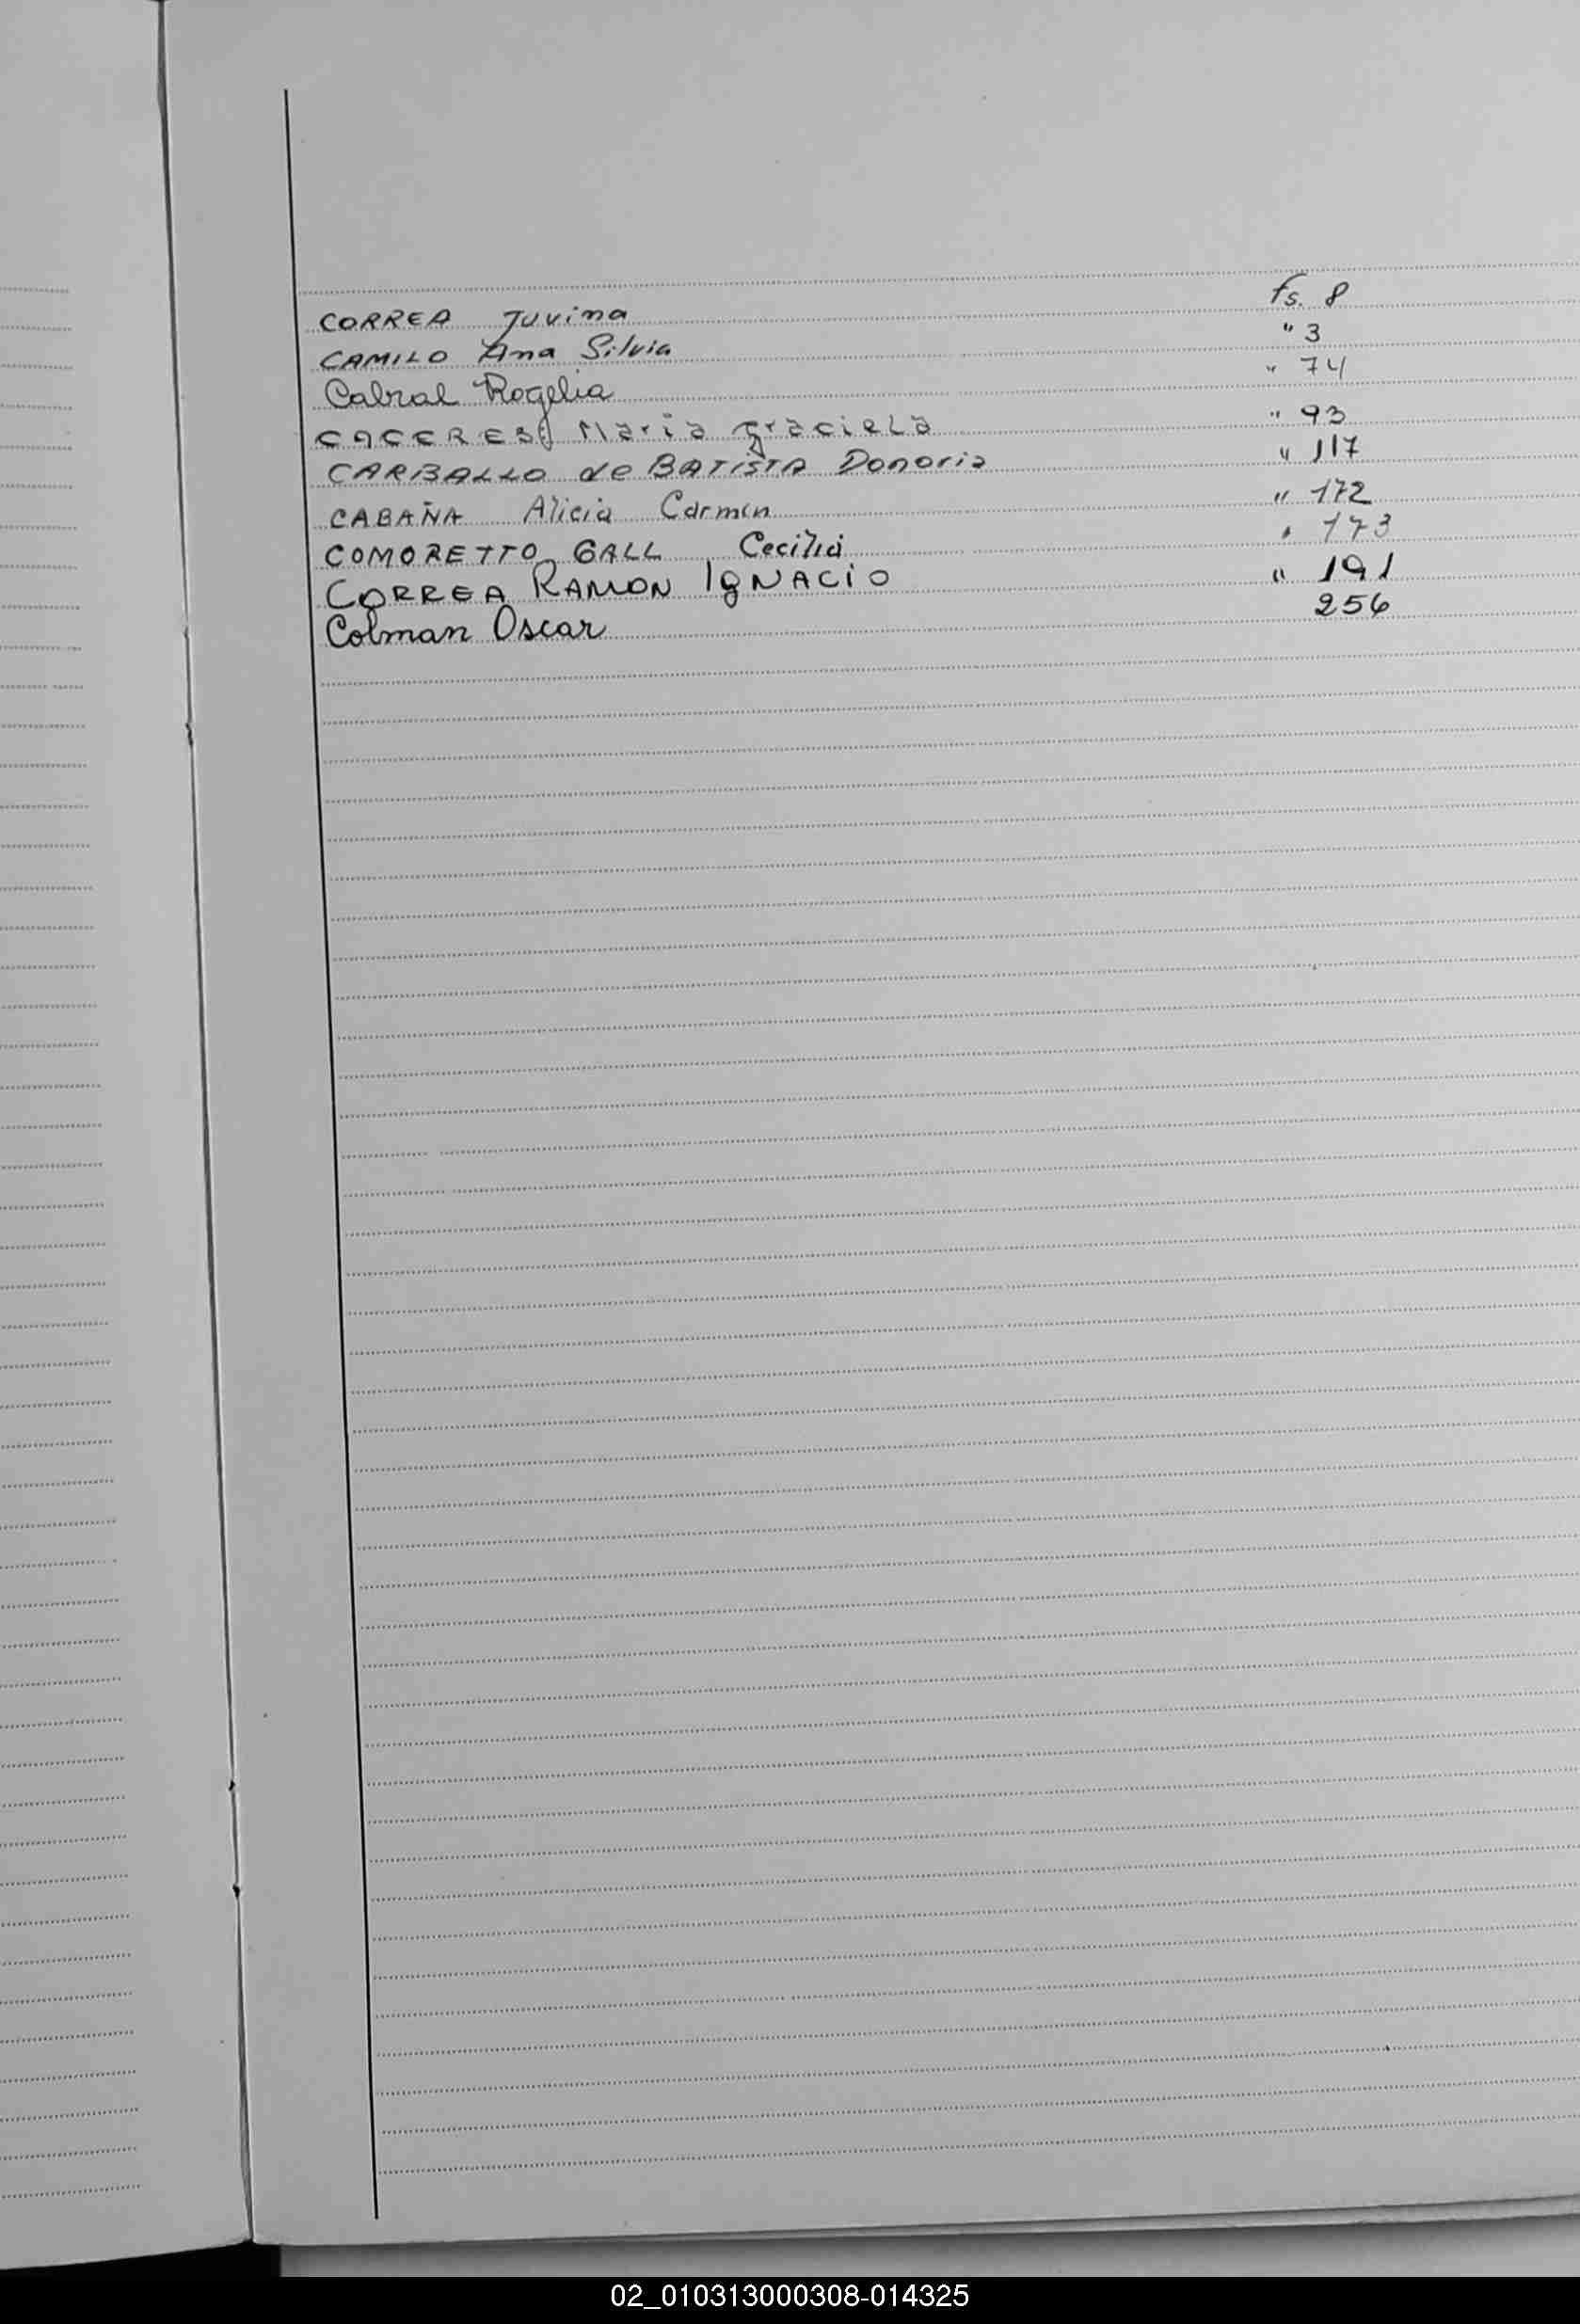 CORREA Juvina fs. 8
CAMILO Ana Silvia " 3
Cabral Rogelia " 74
CACERES Maria graciela " 93
CARBALLO de BATISTA Donoria " 117
CABAÑA Alicia Carmen " 172
COMORETTO GALL Cecilia " 173
CORREA RAMON IgNACiO " 191
Colman Oscar 256
02_010313000308-014325